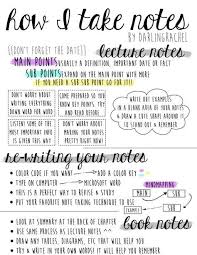 how I take notes
BY DARLINGRACHEL
(DON'T FORGET THE DATE!)
lecture notes
MAIN POINTS USUALLY A DEFINITION, IMPORTANT DATE OR FACT
SUB POINTS EXPAND ON THE MAIN POINT WITH MORE
IF YOU NEED A SUB SUB POINT GO FOR IT!
DON'T WORRY ABOUT
WRITING EVERYTHING
DOWN WORD FOR WORD
COME PREPARED SO YOU
KNOW KEY POINTS, TRY
AND READ BEFORE
LISTEN SOME OF THE
MOST IMPORTANT INFO
IS GIVEN THIS WAY
WRITE OUT EXAMPLES
IN A BLANK AREA OF YOUR NOTES
DRAW A CLOUD AROUND
re-writing your notes
COLOR CODE IF YOU WANT
ADD A COLOR KEY
TYPE ON COMPUTER
MICROSOFT WORD
THIS IS A PERFECT WAY TO REVISE & STUDY
PUT YOUR FAVORITE NOTE TAKING TECHNIQUE TO USE
MINDMAPPING
MAIN
SUB
SUB
book notes
LOOK AT SUMMARY AT THE BACK OF CHAPTER
USE SAME PROCESS AS LECTURE NOTES
DRAW ANY TABLES, DIAGRAMS, ETC THAT WILL HELP YOU
TRY & WRITE IN YOUR OWN WORDS SO IT WILL HELP YOU REMEMBER